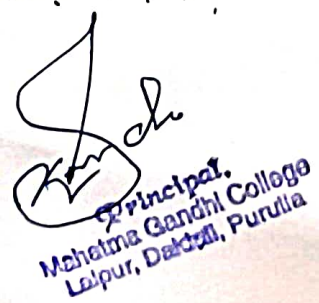 Principal.
Mahatma Gandhi College
Lalpur, Daldali, Purulia